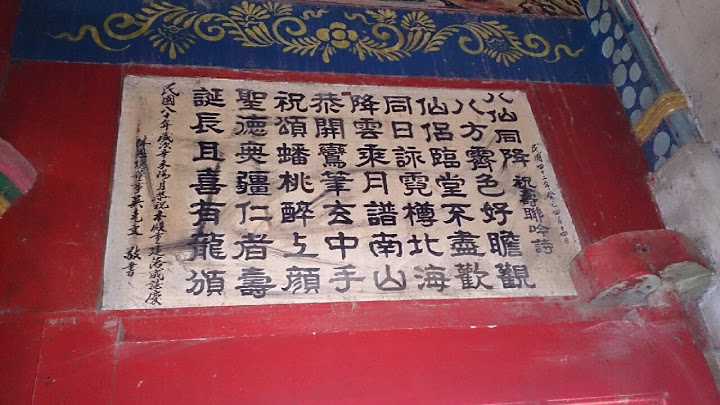 民國四十二年癸巳四月十四日
八仙同降 祝壽聯吟詩
八方霽色好瞻觀
仙侶臨堂不盡歡
同日詠霓樽北海
降雲乘月譜南山
恭開鸞筆玄中手
祝頌蟠桃醉上顏
聖德無疆仁者壽
誕長且喜有龍頒
民國八十年歲次辛未陽月恭祝本殿重建落成誌慶
吳克文 敬書